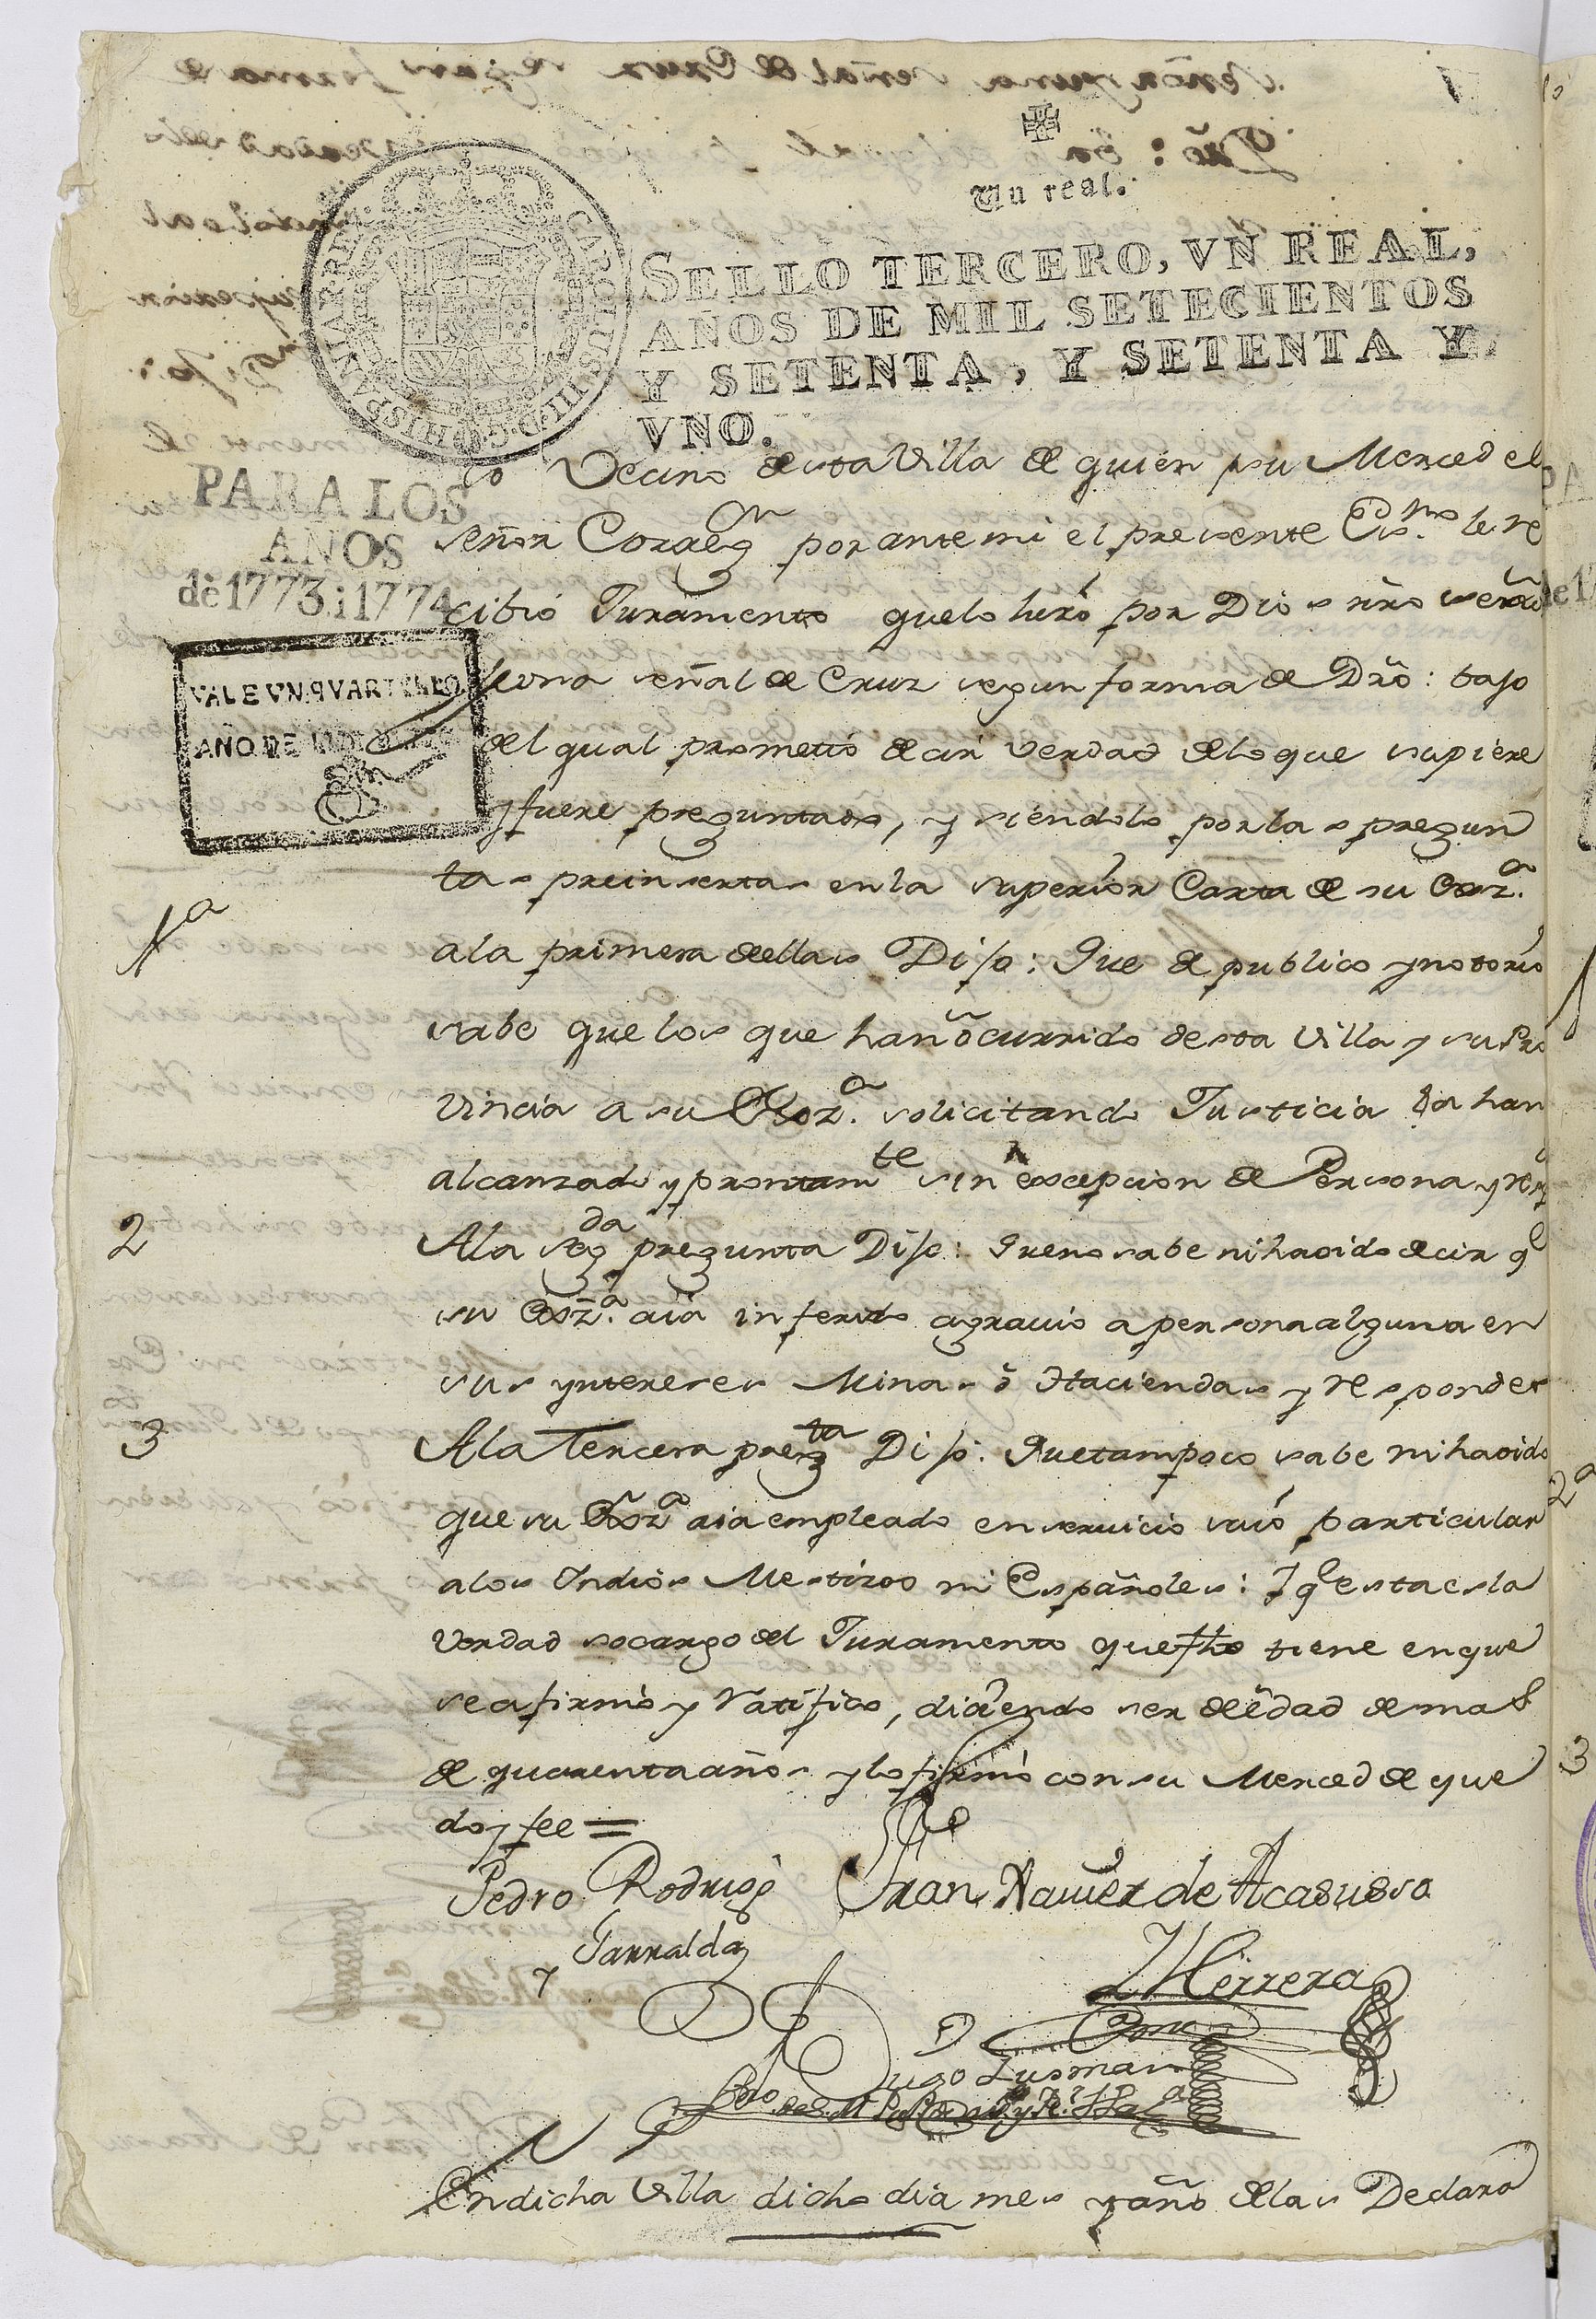 Un real.
SELLO TERCERO, VN REAL,
AÑOS DE MIL SETECIENTOS
Y SETENTA, Y SETENTA Y
VNO.
PARA LOS
AÑOS
de 1773 i 1774
VALE VN QVARTILLO
AÑO DE
Vecino de esta Villa de quien su Merced el
Señor Correg.or por ante mi el presente Es.no le re
cibió Juramento que lo hizo por Dios nro señor
y una señal de Cruz segun forma de Dro: bajo
del qual prometió decir verdad de lo que supiere
y fuere preguntado, y siendolo por las pregun
tas preinsertas en la superior Carta de su Exz.a
1a
a la primera de ellas Dijo: Que de publico y notorio
sabe que los que han ocurrido desta Villa y su Pro
vincia a su Exz.a solicitando Justicia la han
alcanzado y prontam.te sin excepcion de Persona y resp
2
A la seg.da pregunta Dijo: Que no sabe ni ha oido decir q.e
su Exz.a aia inferido agravio a persona alguna en
sus yntereses Minas ó Haciendas y responde
3
A la Tercera preg.ta Dijo: Que tampoco sabe ni ha oido
que su Exz.a aia empleado en servicio suio particular
a los Indios Mestizos ni Españoles: Y q.e esta es la
verdad so cargo del Juramento que fho tiene en que
se afirmó y ratificó, diciendo ser de edad de mas
de quarenta años y lo firmó con su Merced de que
doy fee =
Pedro Rodrig.z
y Garralda
Fran.co Xavier de Acasusso
Herrera
Lugo Lusman
En dicha Villa dicho dia mes y año de las Declara